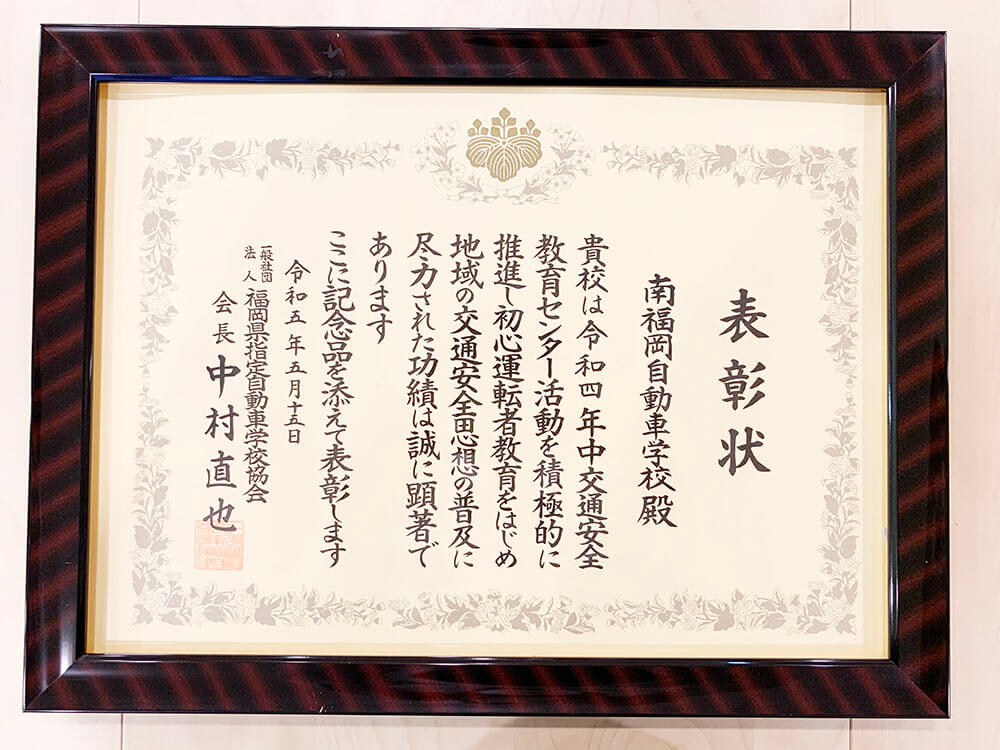 表彰状
南福岡自動車学校殿
貴校は令和四年中交通安全
教育センター活動を積極的に
推進し初心運転者教育をはじめ
地域の交通安全思想の普及に
尽力された功績は誠に顕著で
あります
ここに記念品を添えて表彰します
令和五年五月十五日
一般社団法人 福岡県指定自動車学校協会
会長 中村直也